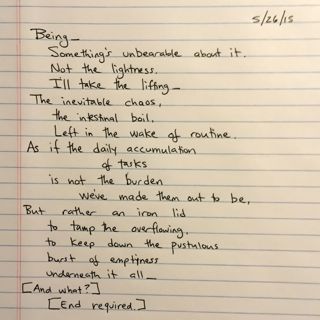 5/26/15
Being_
Something's unbearable about it.
Not the lightness.
I'll take the lifting_
The inevitable chaos,
the intestinal boil,
Left in the wake of routine.
As if the daily accumulation
of tasks
is not the burden
we've made them out to be,
But rather an iron lid
to tamp the overflowing,
to keep down the pustulous
burst of emptyness
underneath it all_
[And what?]
[End required.]